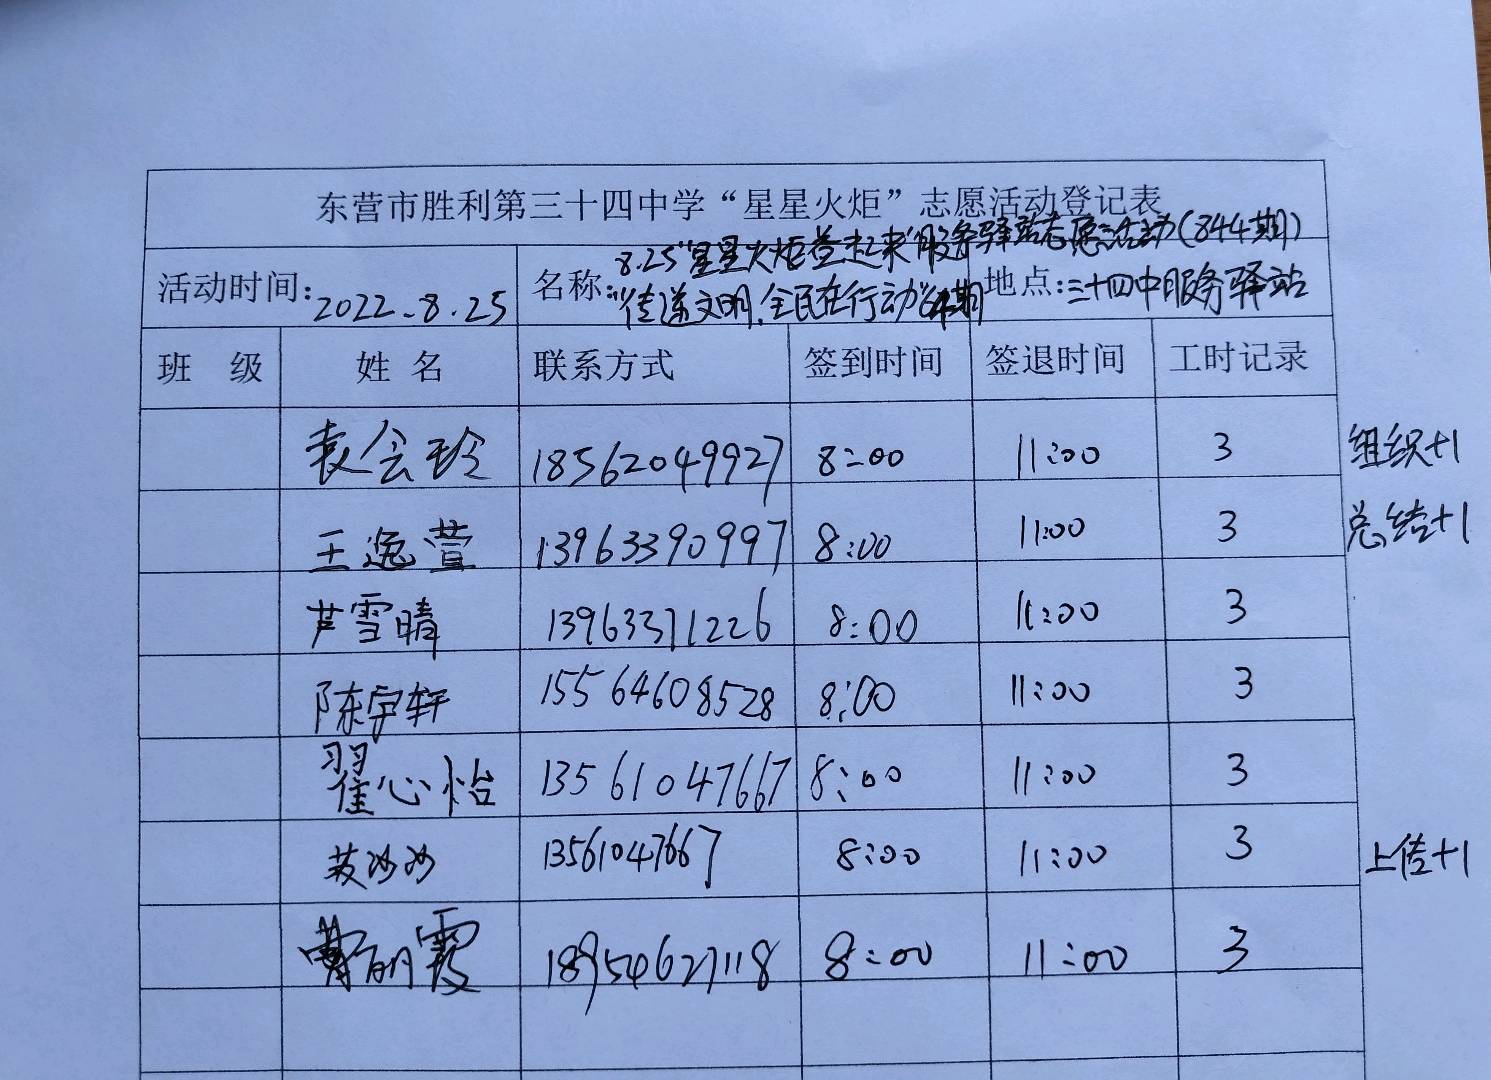 东营市胜利第三十四中学“星星火炬”志愿活动登记表
活动时间：2022.8.25
名称：8.25“星星火炬益起来”服务驿站志愿活动（844期）
“传递文明、全民在行动”期
地点：三十四中服务驿站
班 级 姓 名 联系方式 签到时间 签退时间 工时记录
袁会玲 18562049927 8:00 11:00 3 组织+1
王逸萱 13963390997 8:00 11:00 3 总结+1
芦雪晴 13963371226 8:00 11:00 3
陈宇轩 15564608528 8:00 11:00 3
翟心怡 13561047667 8:00 11:00 3
苏沙沙 13561047667 8:00 11:00 3 上传+1
曹丽霞 18954627118 8:00 11:00 3